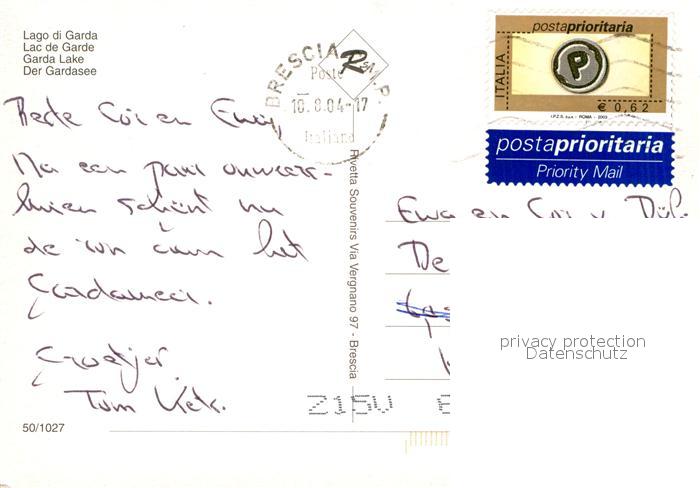 Lago di Garda
Lac de Garde
Garda Lake
Der Gardasee
BRESCIA
Poste
10.8.04-17
Italiane
postaprioritaria
ITALIA
P
€ 0,62
I.P.Z.S. S.p.A. - ROMA - 2003
postaprioritaria
Priority Mail
Beste Cor en
Na een paar onweers-
buien schijnt nu
de zon aan het
Gardameer.
Groetjes
Tom
Rivetta Souvenirs Via Vergnano 97 - Brescia
en Cor v.
De
privacy protection
Datenschutz
Z15U
50/1027